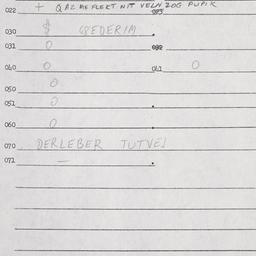 022 + QAZ ME FLEKT NIT VELN ZOG PUPIK
023
030 $ QEDERIM
031 0 032
040 0 041 0
050 0
051 0
060 0
070 DERLEBER TUTVEJ
072 —